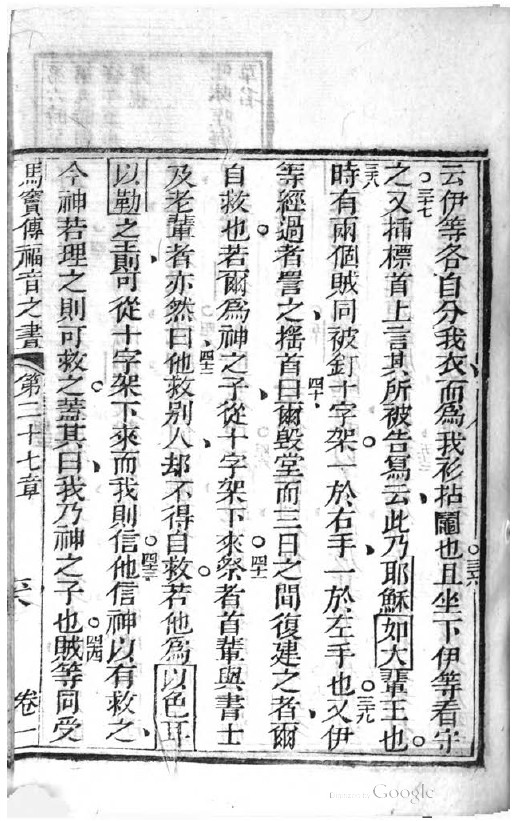 云伊等各自分我衣而爲我衫拈鬮也。三六且坐下伊等看守
之。三七又插標首上言其所被告寫云此乃耶穌如大輩王也。
三八時有兩個賊同被釘十字架。一於右手、一於左手也。三九又伊
等經過者詈之、搖首曰、四十爾毀堂而三日之間復建之者、爾
自救也。若爾爲神之子、從十字架下來。四一祭者首輩與書士
及老輩者亦然曰、四二他救别人、却不得自救。若他爲以色耳
以勒之王、則可從十字架下來而我則信他。四三信神以有救之、
今神若理之則可救之。蓋其曰、我乃神之子也。四四賊等同受
馬竇傳福音之書 第二十七章 卷一
Google